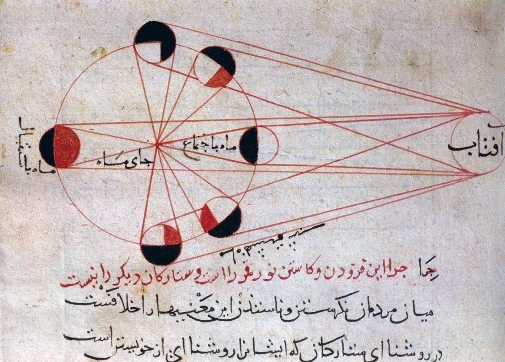 افتاب
ماه باجتماع
جای ماه
ماه باستقبال
چرا این فزودن و کاستن نور قمر را است و ستارکان دیکر را نیست
میان مردمان این را خلافست
در روشنائی ستارکان که ایشانرا روشنائی از خویشتن است